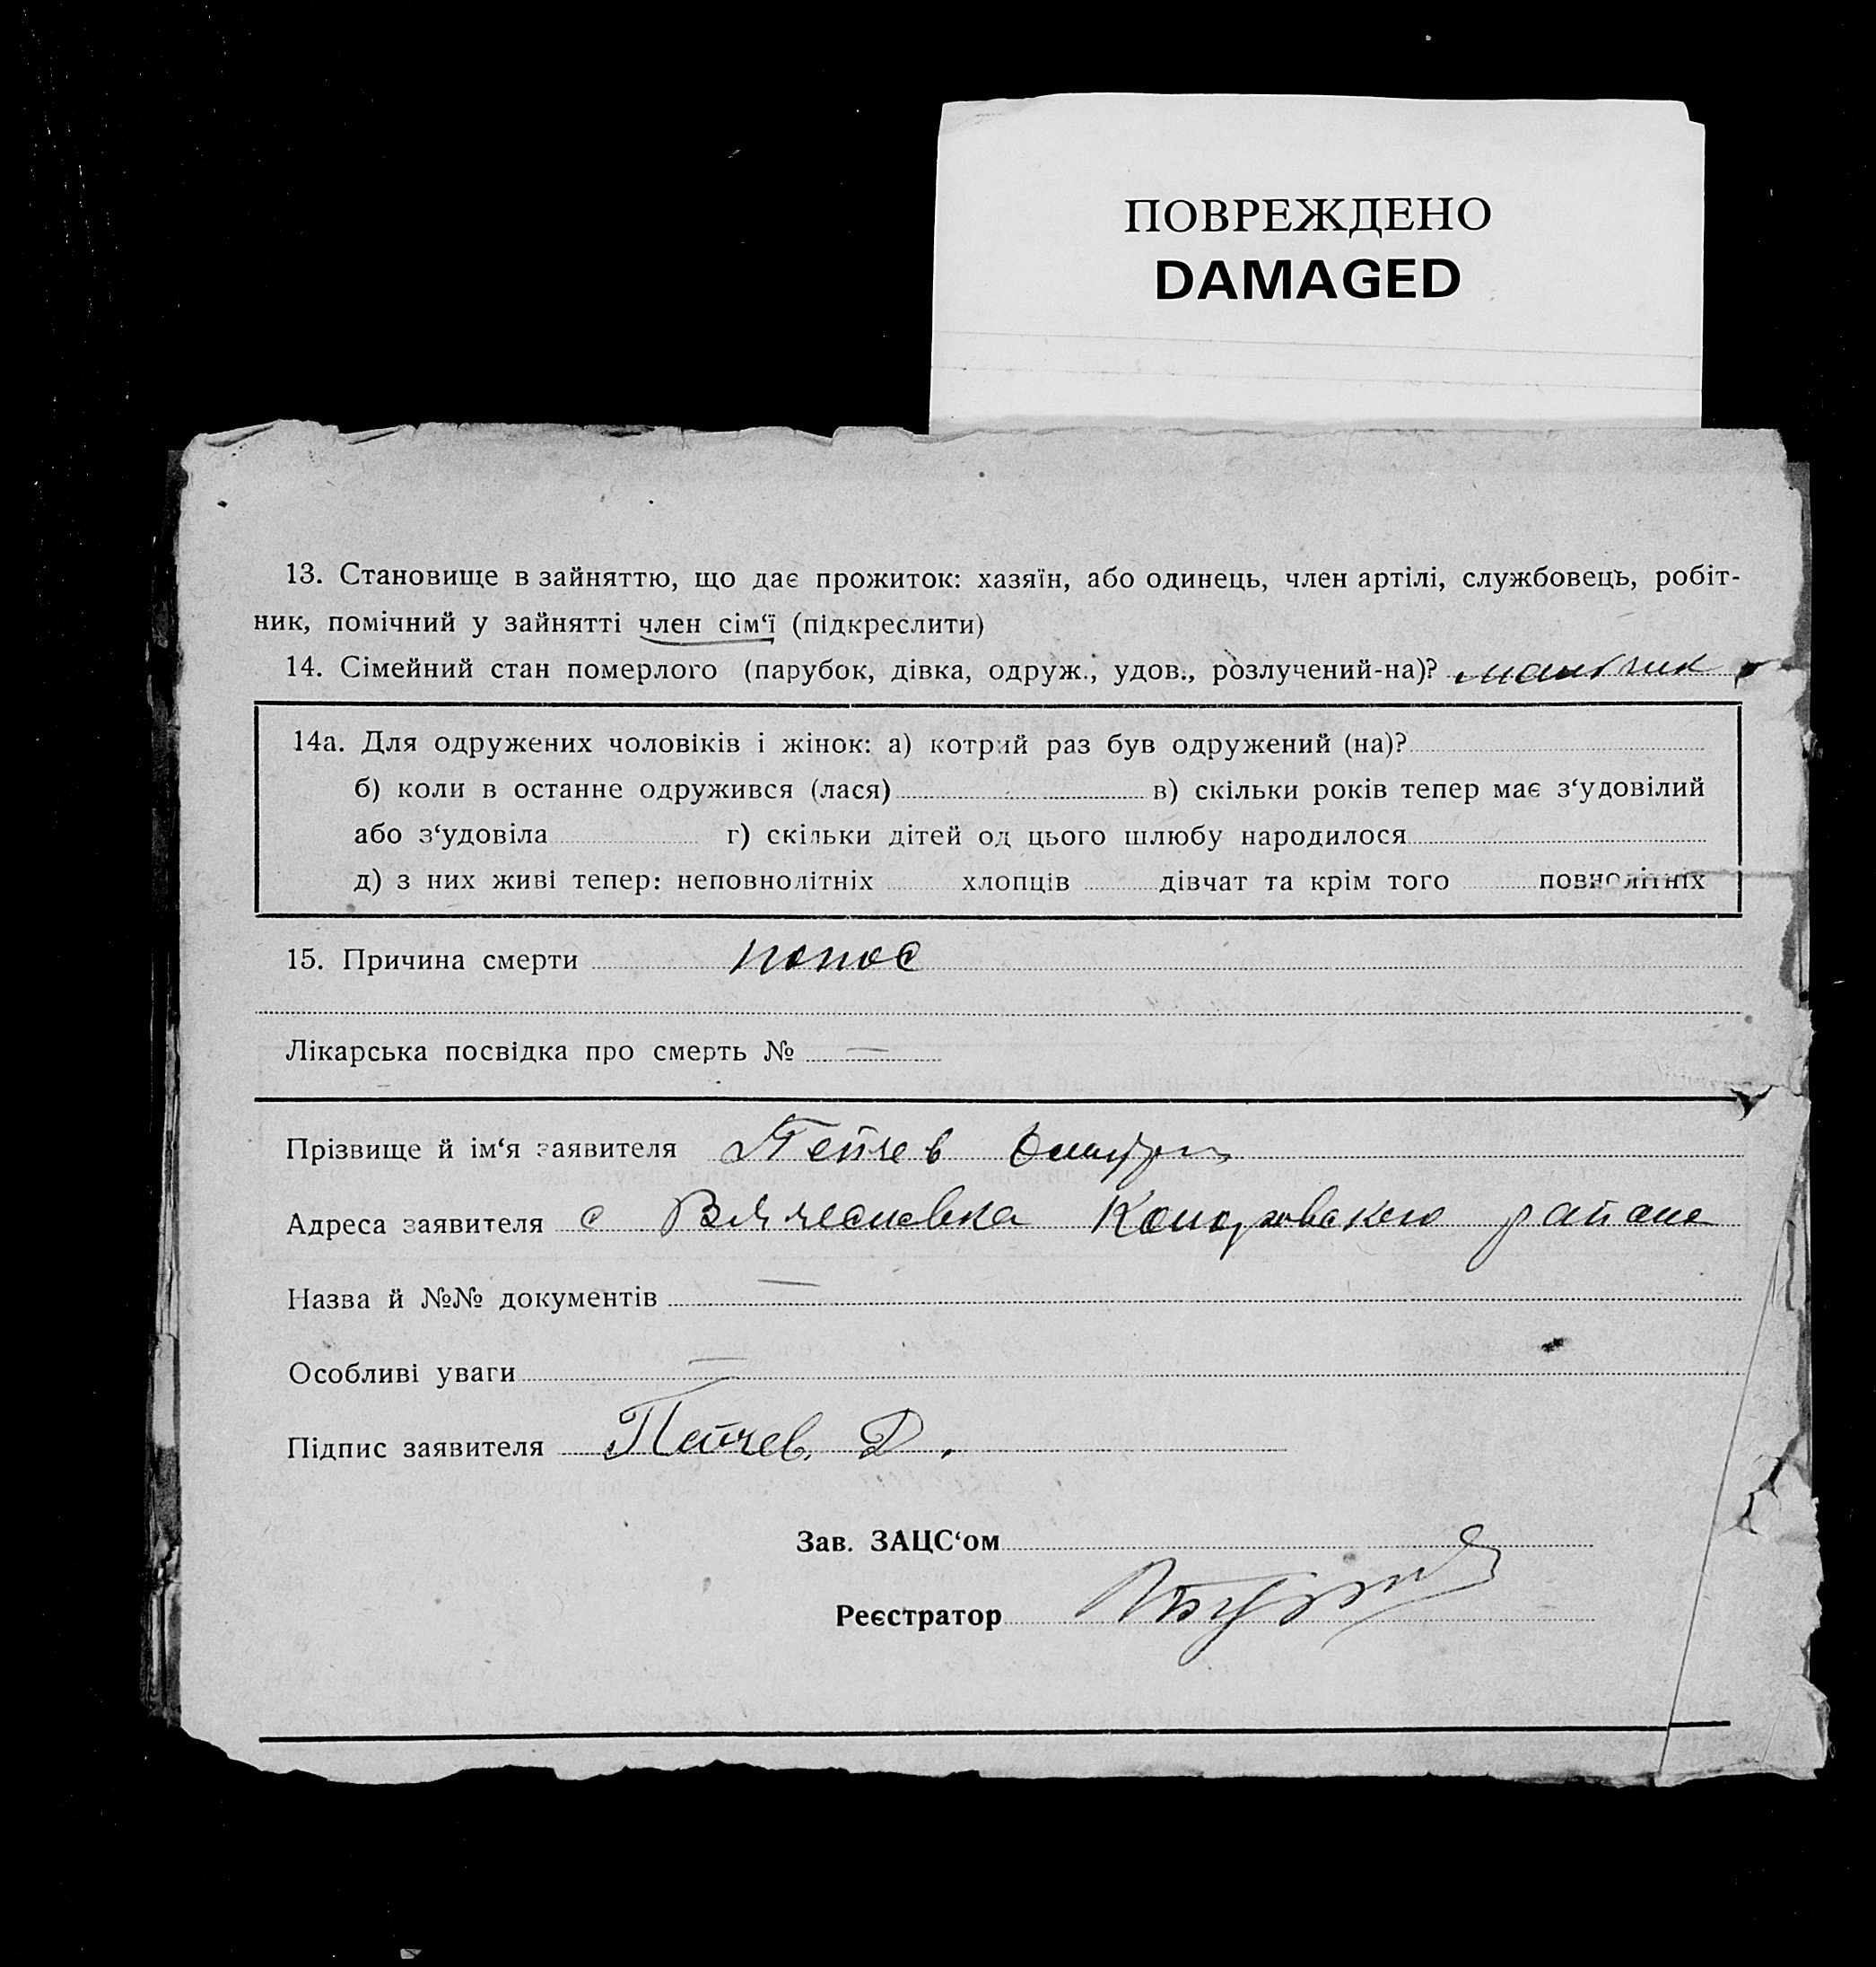 ПОВРЕЖДЕНО
DAMAGED
13. Становище в зайняттю, що дає прожиток: хазяїн, або одинець, член артілі, службовець, робіт-
ник, помічний у зайнятті член сім‘ї (підкреслити)
14. Сімейний стан померлого (парубок, дівка, одруж., удов., розлучений-на)? мальчик
14а. Для одружених чоловіків і жінок: а) котрий раз був одружений (на)?
б) коли в останне одружився (лася) в) скільки років тепер має з‘удовілий
або з‘удовіла г) скільки дітей од цього шлюбу народилося
д) з них живі тепер: неповнолітніх хлопців дівчат та крім того повнолітніх
15. Причина смерти понос
Лікарська посвідка про смерть № —
Прізвище й ім‘я заявителя Пейчев
Адреса заявителя с Вячеславка района
Назва й №№ документів —
Особливі уваги —
Підпис заявителя Пейчев. Д.
Зав. ЗАЦС‘ом
Реєстратор